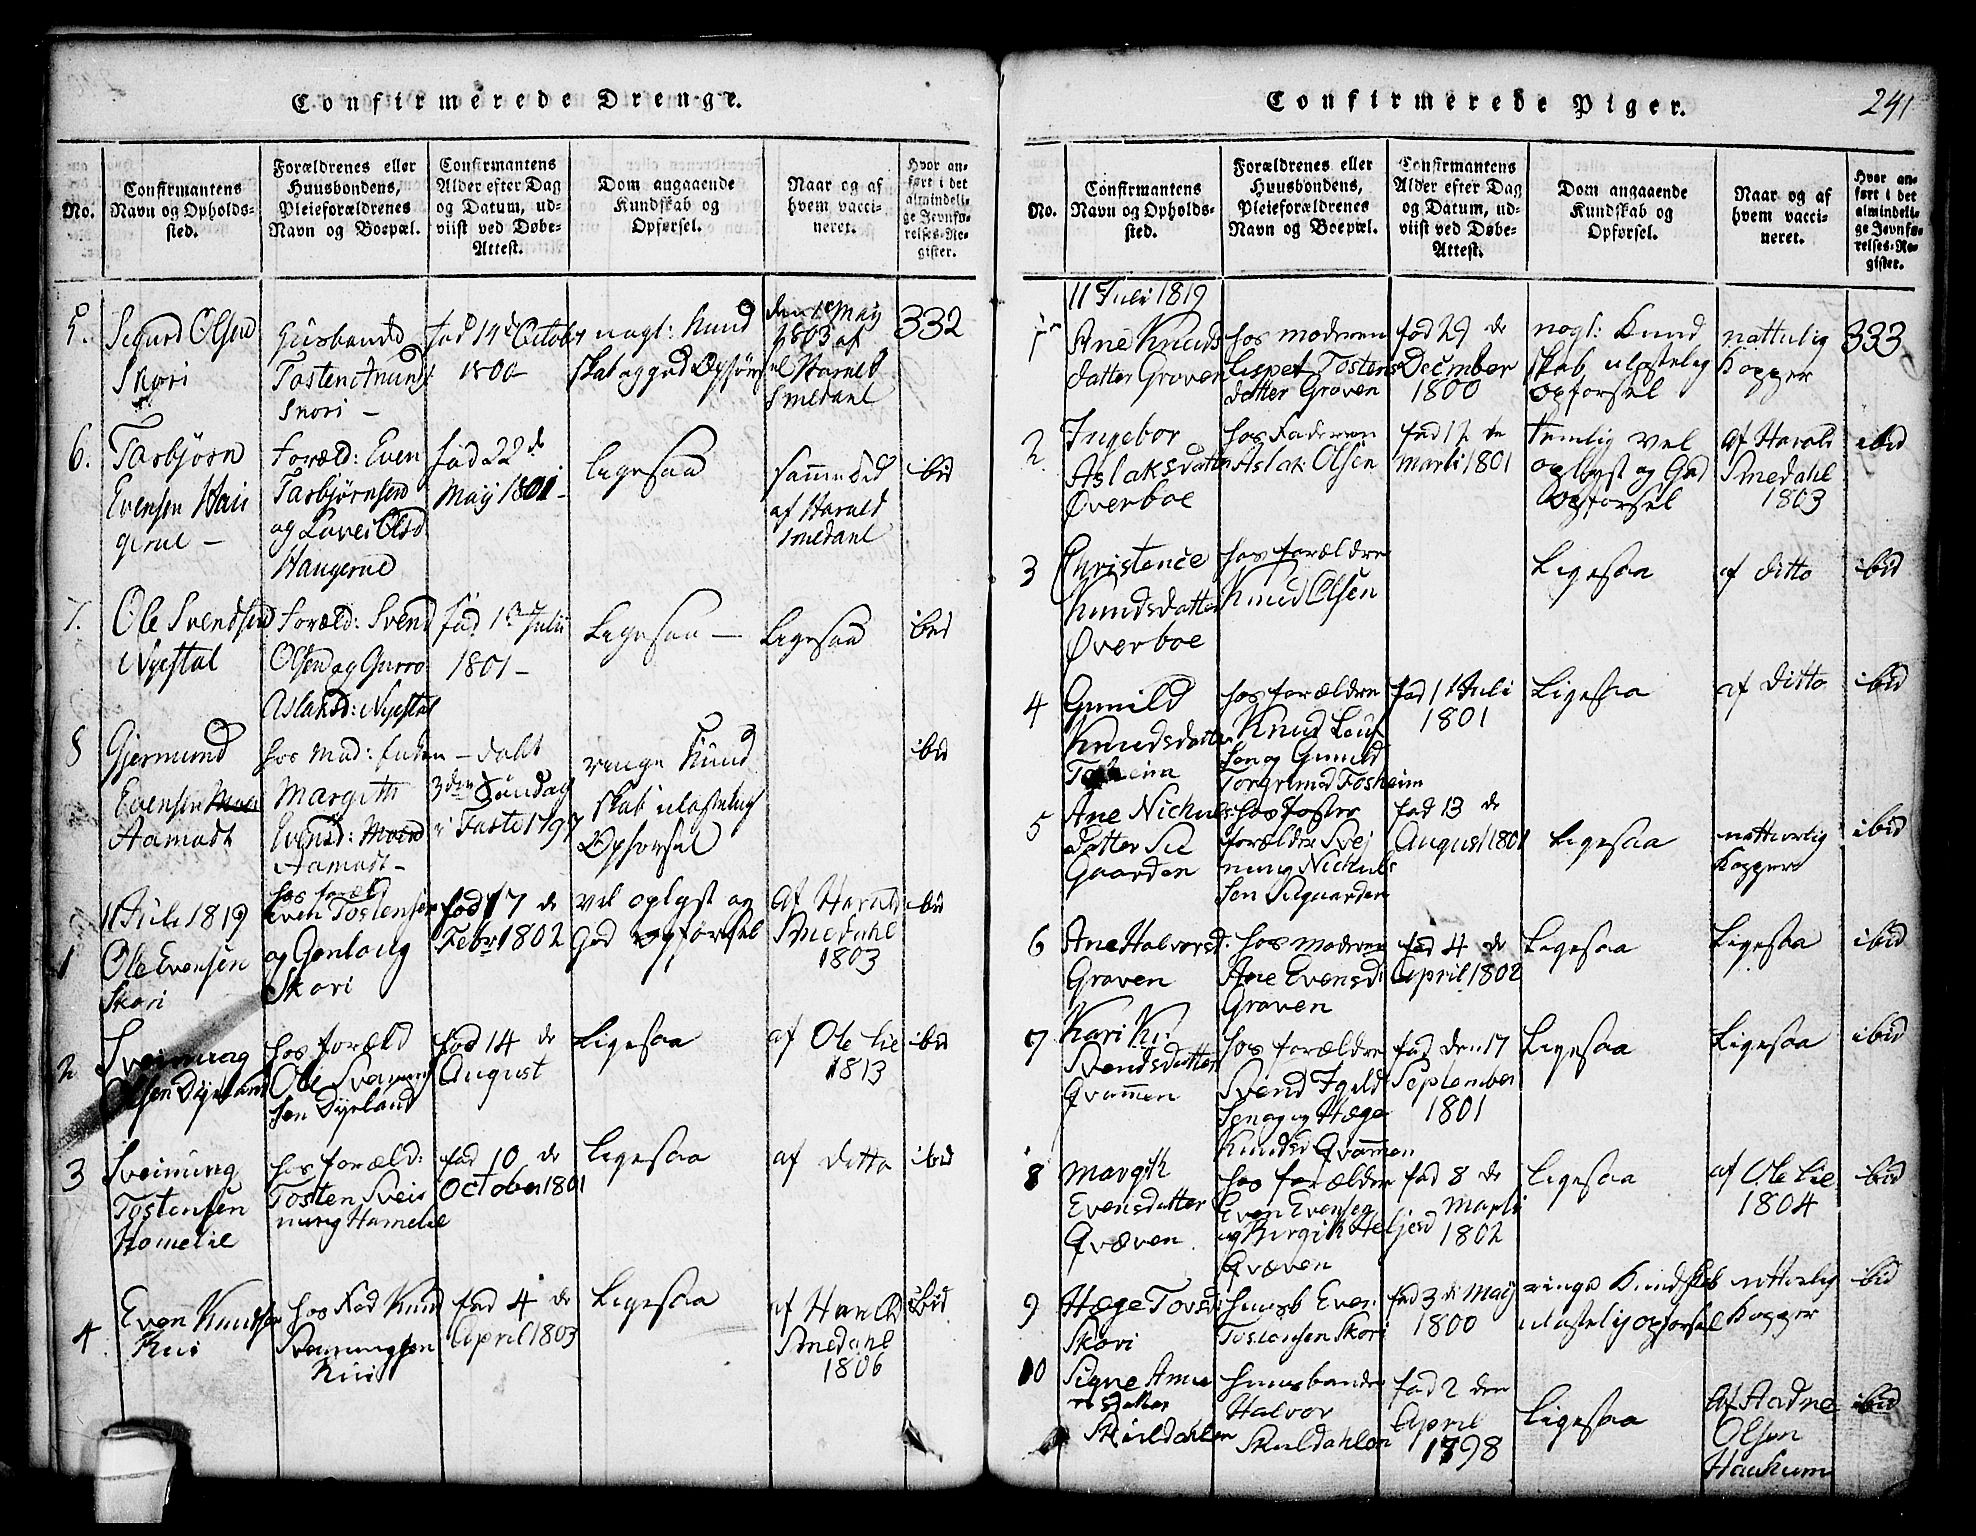 Confirmerede Drenge.
No.
Confirmantens
Navn og Opholds-
sted.
Forældrenes eller
Huusbondens,
Pleieforældrenes
Navn og Boepæl.
Confirmantens
Alder efter Dag
og Datum, ud-
viist ved Døbe-
Attest.
Dom angaaende
Kundskab og
Opførsel.
Naar og af
hvem vacci-
neret.
Hvor an-
ført i det
almindeli-
ge Jevnfø-
relses-Re-
gister.
5.
Sigurd Olsen
Skori
Huusbonde
Tosten Amund
Skori -
fød 14d October
1800
nogl: Kund
skab og god Opførsel
den 18 Maij
1803 af
Harald
Smedahl
332
6.
Tarbjørn
Evensen Hau
gerne -
Foræld: Even
Tarbjørnsen
og Lover Olsd
Haugerne
fød 22d
Maij 1801 -
Ligesaa
samme tid
af Harald
Smedahl
ibid
7.
Ole Svendsen
Nyestøl
Foræld: Svend
Olsen og Gurro
Aslaksd: Nyestøl
fød 1ste Julii
1801 -
Ligesaa -
Ligesaa
ibid
8
Gjermund
Evensen Moen
Aamodt
hos Mod:
Margith
Evensd: Moen
Aamodt -
- døbt
3den Søndag
i Faste 1797
ringe Kund
skab ulastelig
Opførsel
ibid
11 Juli 1819
1
Ole Evensen
Skori
hos foræld
Even Tostensen
og Gonlaug
Skori
fød 17 de
Febr 1802
vel oplyst og
God opførsel
af Harald
Smedahl
1803
ibid
2
Sveinung
Olsen Dyrland
hos foræld
Ole Sveinung
sen Dyrland
fød 14 de
August
Ligesaa
af Ole Lie
1813
ibid
3
Sveinung
Tostensen
Homelie
hos foræld:
Tosten Svei
nung Homelie
fød 10 de
October 1801
Ligesaa
af ditto
ibid
4
Even Knudsen
Kiis
hos Fad Knud
Sveinungsen
Kiis
fød 4 de
April 1803
Ligesaa
af Harald
Smedahl
1806
ibid
Confirmerede Piger.
241
No.
Confirmantens
Navn og Opholds-
sted.
Forældrenes eller
Huusbondens,
Pleieforældrenes
Navn og Boepæl.
Confirmantens
Alder efter Dag
og Datum, ud-
viist ved Døbe-
Attest.
Dom angaaende
Kundskab og
Opførsel.
Naar og af
hvem vacci-
neret.
Hvor an-
ført i det
almindeli-
ge Jevnfø-
relses-Re-
gister.
11 Juli 1819
1
Ane Knuds
datter Groven
hos moderen
Lispet Tostens
datter Groven
fød 29 de
December
1800
nogl: Kund
skab ulastelig
opførsel
natturlig
Kopper
333
2.
Ingebor
Aslaksdatter
Øverboe
hos Faderen
Aslak Olsen
fød 12 te
Marti 1801
temlig vel
oplyst og God
opførsel
af Harald
Smedahl
1803
ibid
3
Christence
Knudsdatter
Øverboe
hos forældre
Knud Olsen
Ligesaa
af ditto
ibid
4
Gunild
Knudsdatter
hos forældre
Knud
sen og Gunild
Fosheim
fød 11 Juli
1801
Ligesaa
af ditto
ibid
5
Ane Nichuls
datter Sel
Gaarden
hos foster
forældre Svej
nung Nichuls
sen Selgaarden
fød 13 de
August 1801
Ligesaa
natturlig
Kopper
ibid
6
Ane Halvorsd:
Groven
hos moderen
Ane Evensd
Groven
fød 4 de
April 1802
Ligesaa
Ligesaa
ibid
7
Kari
Svendsdatter
Qvammen
hos forældre
Svend
sen og Hæge
Knudsd Qvammen
fød den 17
September
1801
Ligesaa
Ligesaa
ibid
8
Margith
Evensdatter
Qvæven
hos forældre
Even Evensen
og Birgith
Qvæven
fød 8 de
Marti
1802
Ligesaa
af Ole Lie
1804
ibid
9
Hæge Tovsd
Skori
huusb Even
Tostensen Skori
fød 3 de Maij
1800
ringe Kundskab
ulastelig opførsel
natturlig
Kopper
ibid
10
Signe Amu
datter
Skuldahlen
huusbonden
Halvor
Skuldahlen
fød 2 den
April
1798
Ligesaa
af Aadne
Olsen
Haukum
ibid